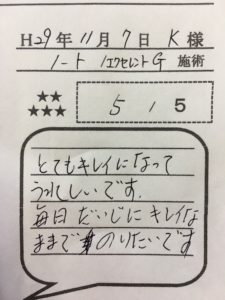 H29年11月7日 K様
ノート/エクセレントG 施術
★★
★★★
5 / 5
とてもキレイになって
うれしいです.
毎日 だいじに キレイな
ままで のりたいです